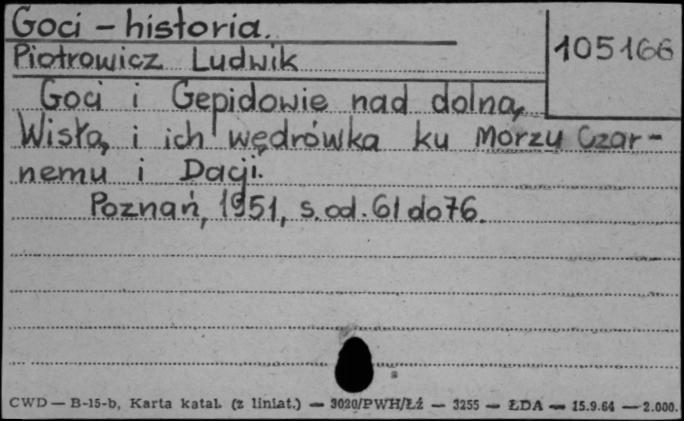 Goci - historia.
105166
Piotrowicz Ludwik
Goci i Gepidowie nad dolną
Wisłą i ich wędrówka ku Morzu Czar-
nemu i Dacji.
Poznań, 1951, s. od. 61 do 76.
CWD — B-15-b, Karta katal. (z liniat.) — 3020/PWH/Łź — 3255 — ŁDA — 15.9.64 — 2.000.